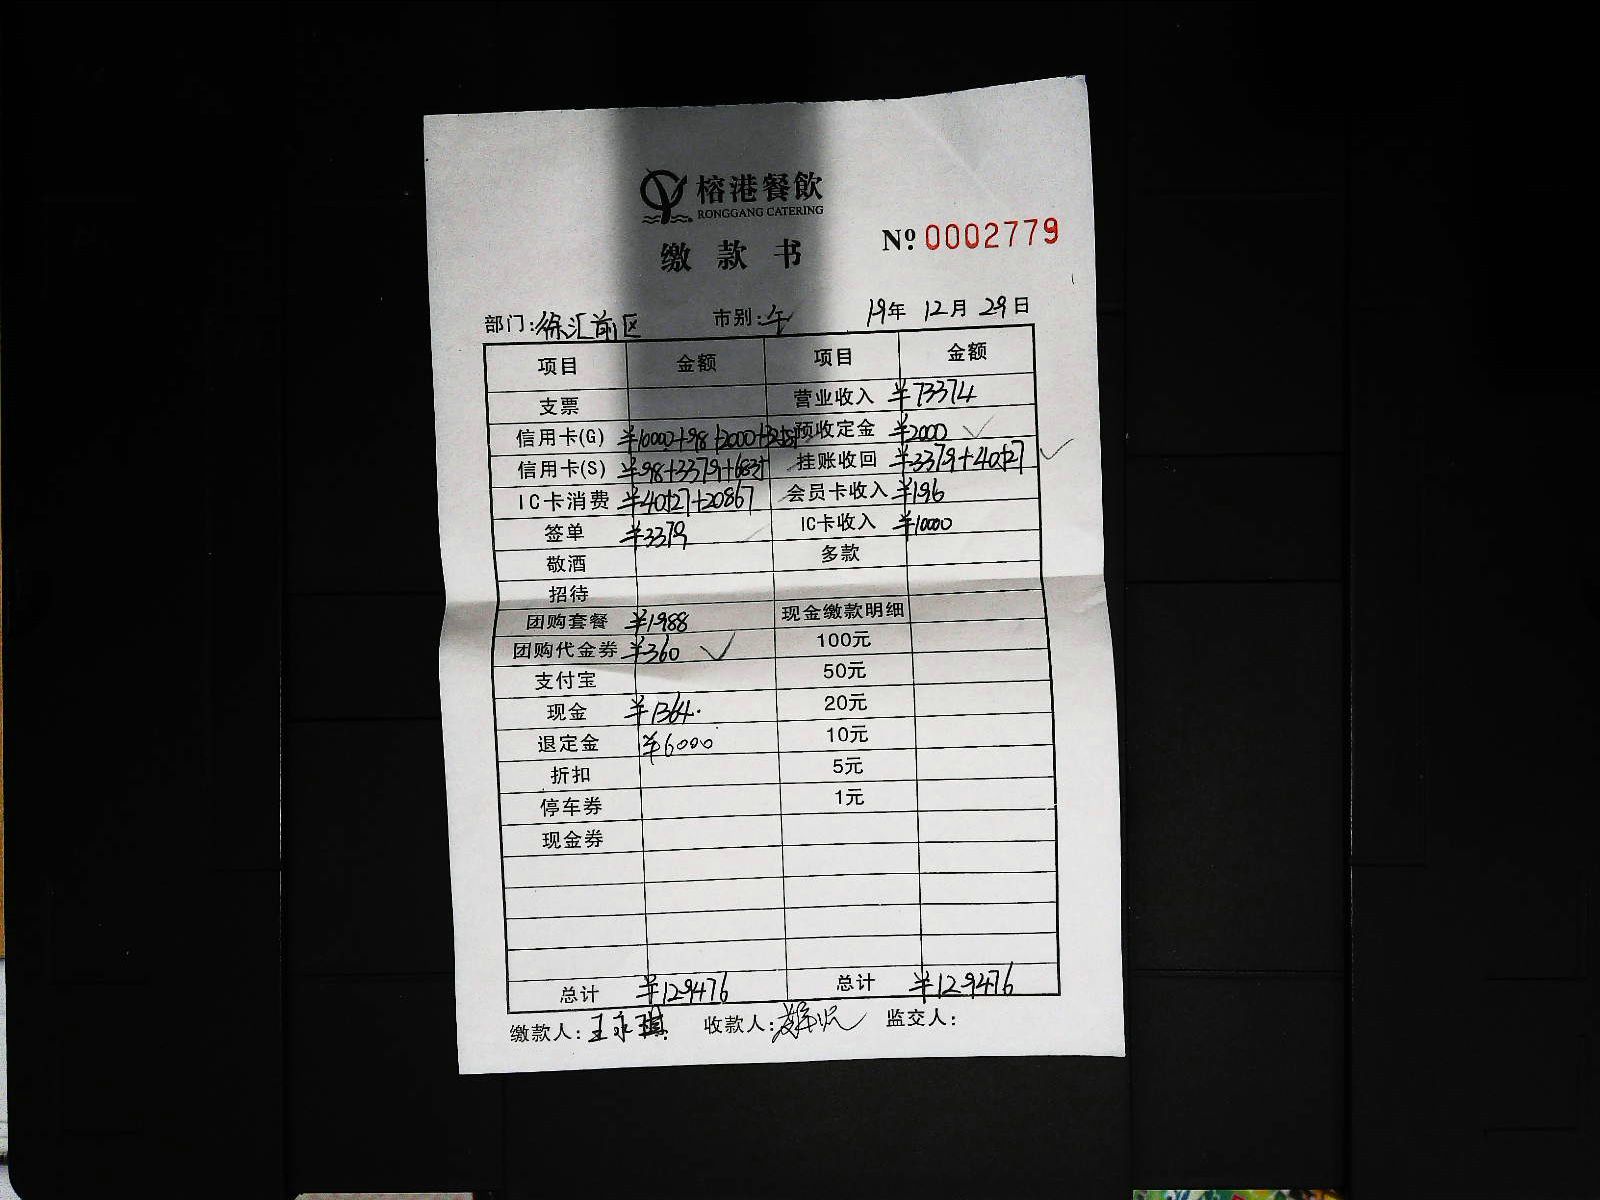 榕港餐飲
RONGGANG CATERING
缴款书
№ 0002779
部门:徐汇前区 市别:午 19年 12月 29日
项目 金额 项目 金额
支票 营业收入 ¥73374
信用卡(G) ¥10000+98+2000+ 预收定金 ¥2000
信用卡(S) ¥98+3379+ 挂账收回 ¥3379+40527
IC卡消费 ¥40527+20867 会员卡收入 ¥196
签单 ¥3379 IC卡收入 ¥10000
敬酒 多款
招待
团购套餐 ¥1988 现金缴款明细
团购代金券 ¥360 100元
支付宝 50元
现金 ¥1364. 20元
退定金 ¥6000 10元
折扣 5元
停车券 1元
现金券
总计 ¥129476 总计 ¥129476
缴款人:王永琪 收款人: 监交人: